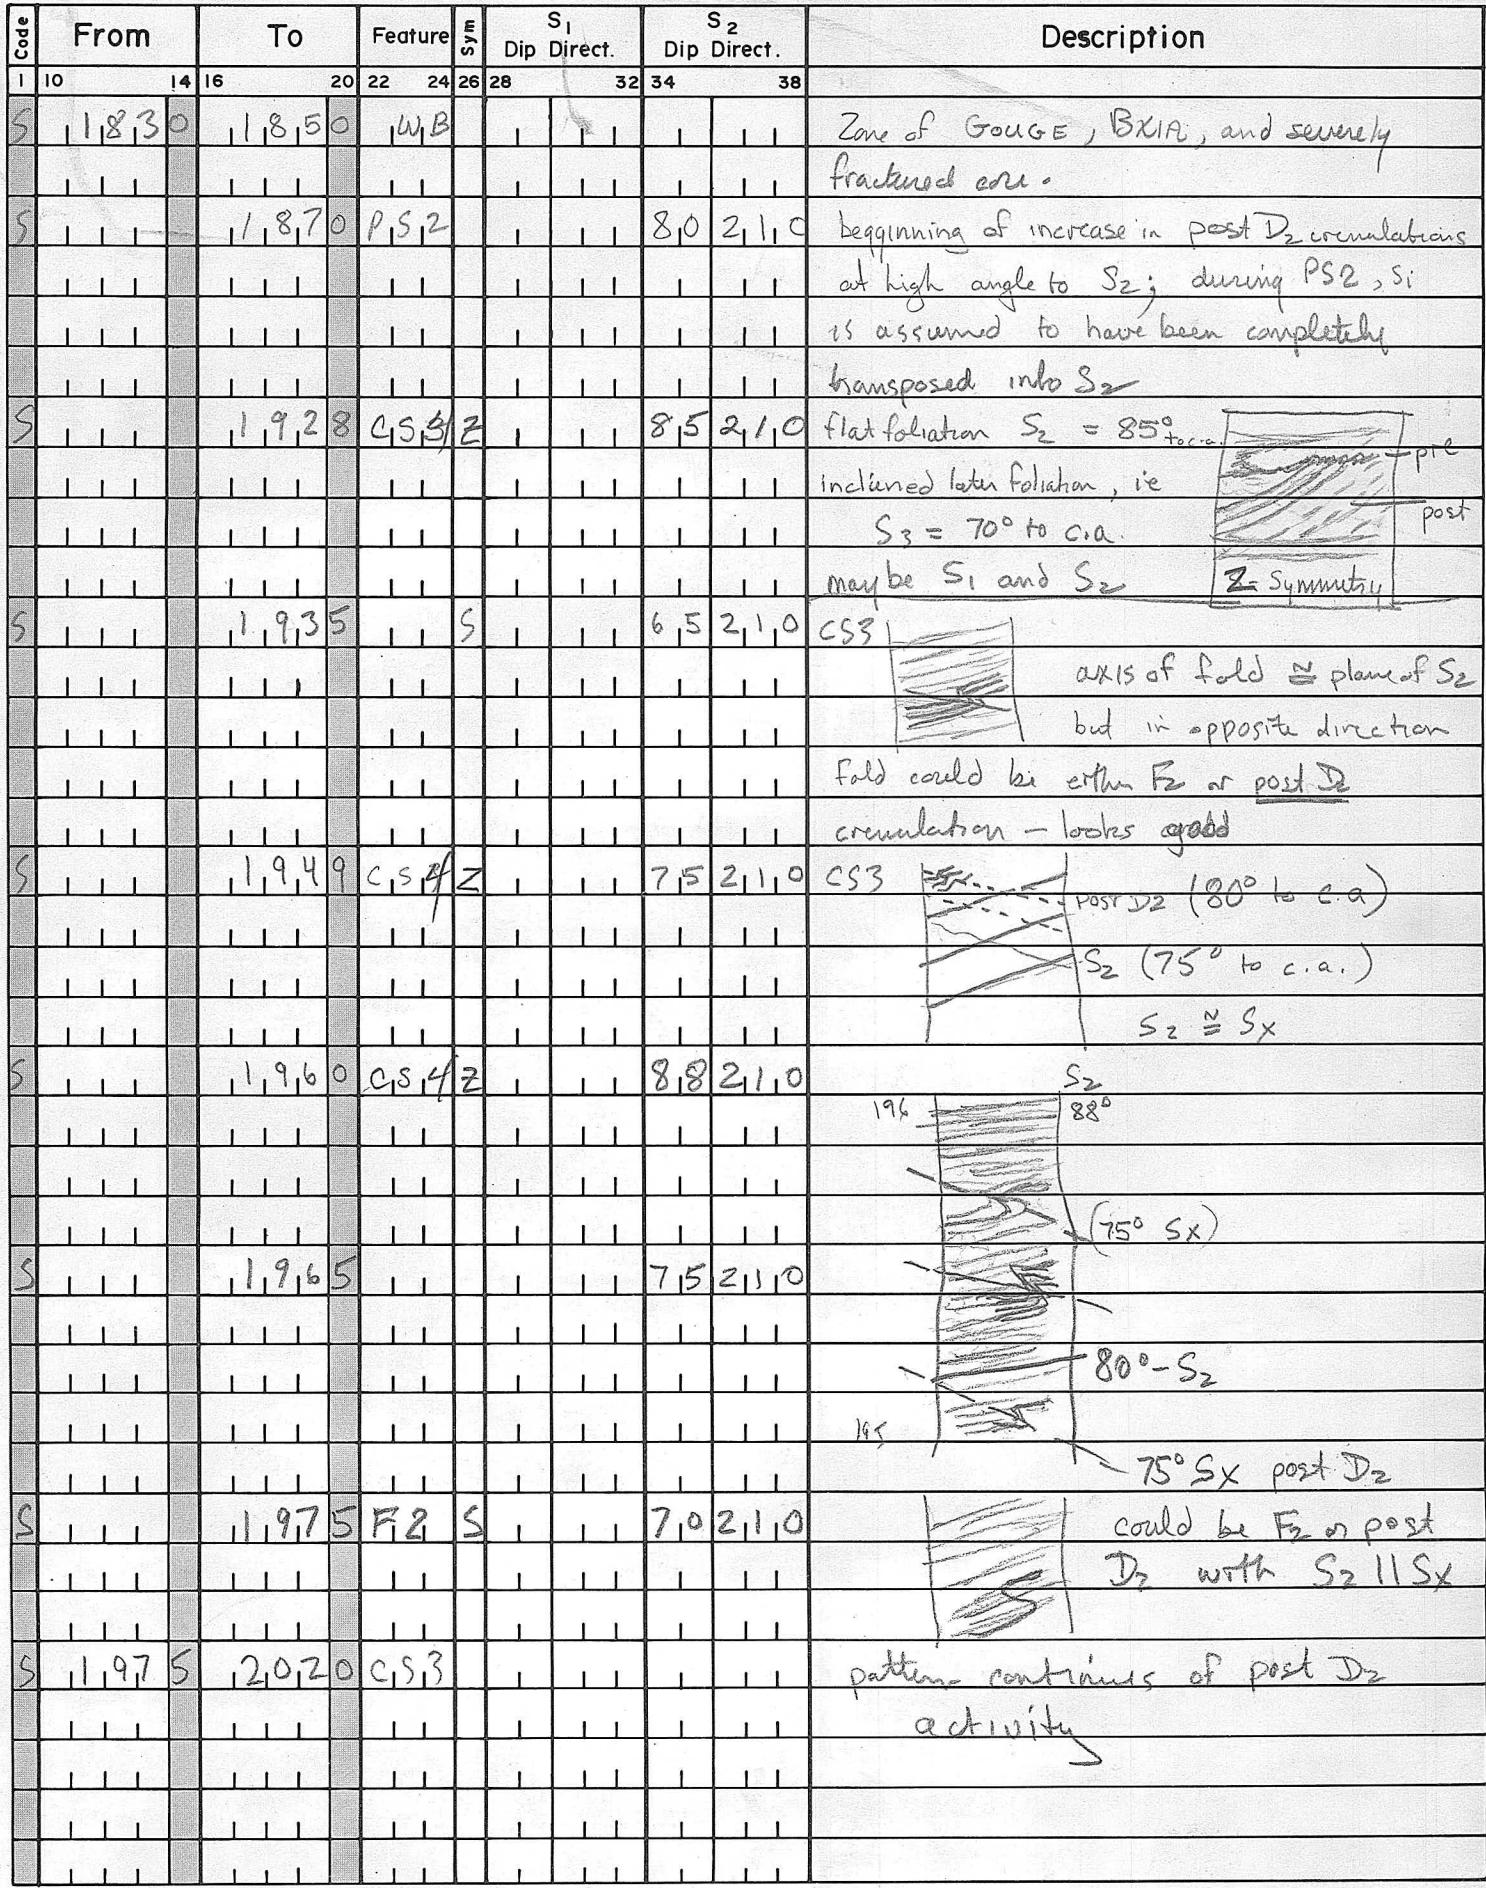 Code From To Feature Sym S1 Dip Direct. S2 Dip Direct. Description
1 10 14 16 20 22 24 26 28 32 34 38
S 1830 1850 WB Zone of GOUGE, BXIA, and severely
fractured core.
S 1870 PS2 80 210 begginning of increase in post D2 crenulations
at high angle to S2; during PS2, S1
is assumed to have been completely
transposed into S2
S 1928 CS3 Z 85 210 flat foliation S2 = 85° to c.a.
pre
inclined later foliation, ie
post
S3 = 70° to c.a.
may be S1 and S2 Z = Symmetry
S 1935 S 65 210 CS3
axis of fold ≅ plane of S2
but in opposite direction
fold could be either F2 or post D2
crenulation - looks good
S 1949 CS4 Z 75 210 CS3 post D2 (80° to c.a)
S2 (75° to c.a.)
S2 ≅ Sx
S 1960 CS4 Z 88 210 S2
196 88°
(75° Sx)
S 1965 75 210
80° - S2
195
75° Sx post D2
S 1975 F2 S 70 210 could be F2 or post
D2 with S2 || Sx
S 1975 2020 CS3 pattern continues of post D2
activity